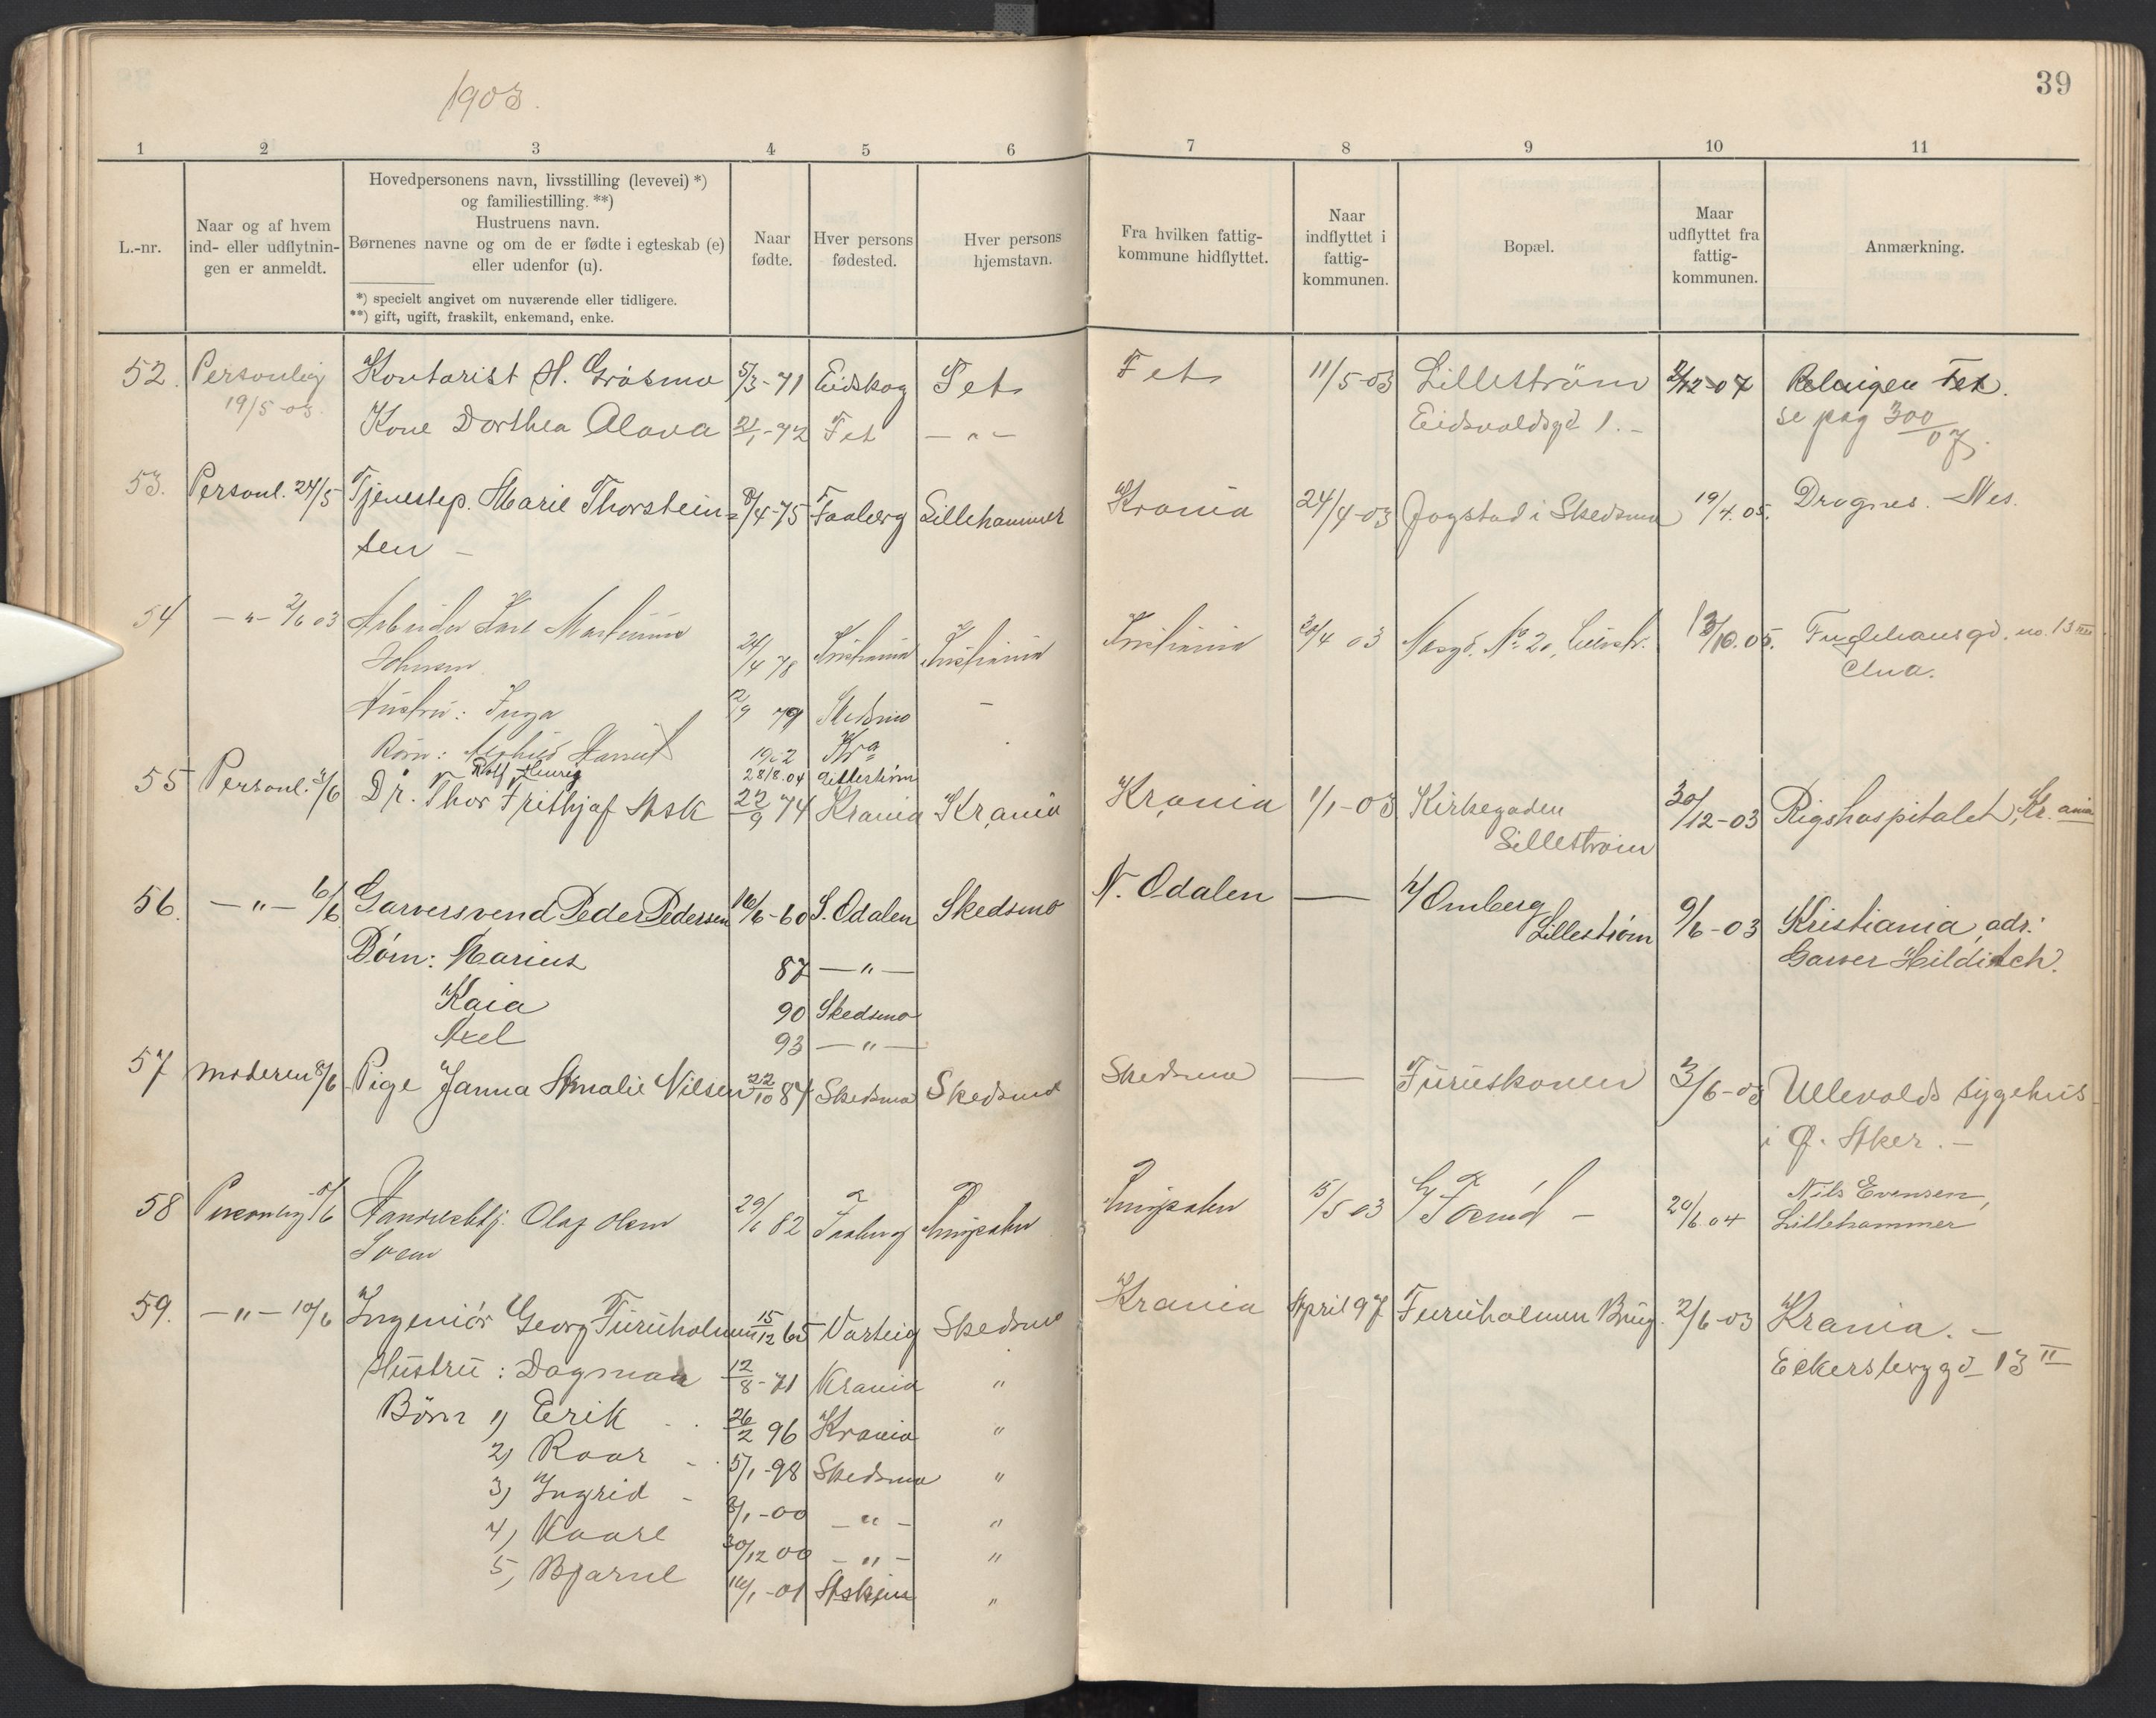 1903.
39
1 2 3 4 5 6 7 8 9 10 11
L.-nr.
Naar og af hvem
ind- eller udflytnin-
gen er anmeldt.
Hovedpersonens navn, livsstilling (levevei) *)
og familiestilling. **)
Hustruens navn.
Børnenes navne og om de er fødte i egteskab (e)
eller udenfor (u).
*) specielt angivet om nuværende eller tidligere.
**) gift, ugift, fraskilt, enkemand, enke.
Naar
fødte.
Hver persons
fødested.
Hver persons
hjemstavn.
Fra hvilken fattig-
kommune hidflyttet.
Naar
indflyttet i
fattig-
kommunen.
Bopæl.
Maar
udflyttet fra
fattig-
kommunen.
Anmærkning.
52. Personlig Kontorist H. Gråsmo 5/3-71 Eidskog Fet Fet 11/5-03 Lilleström 2/12-04 Relingen Fet.
19/5-03. Kone Dorthea Olava 21/1-72 Fet -"- Eidsvoldsgd 1.- se pag 300/07.
53. Personl. 24/5 Tjenestep. Marie Thorstein= 8/4-75 Faaberg Lillehammer Krania 24/4-03 Jogstad i Skedsmo 19/4.05. Drognes. Nes.
sen -
54 -"- 2/6 03 Arbeider Karl Martinius Kristiania 30/4 03 No 20, 13/10.05. Fuglehausgd. no. 13 III
Johnsen 24/4 78 Kristiania Kristiania
Hustru: Inga 79 Skedsmo -
Børn: 1902 Kra
Rolf Henrig 28/8.04 Lillestrøm
55 Personl. 3/6 Dr. Thor Frithjof Ask 22/9 74 Krania Krania Krania 1/1-03 Kirkegaden 30/12-03 Rigshospitalet, Kr.ania
Lillestrøm
56. -"- 6/6 Garversvend Peder Pedersen 16/6-60 S. Odalen Skedsmo N. Odalen - Omberg 9/6-03 Kristiania, adr:
Lillestrøm Garver Hilditch.
Børn: Marius 87 -"-
Kaia 90 Skedsmo
Axel 93 -"-
57 moderen 8/6 Pige Janna Amalie Nilsen 22/10 84 Skedsmo Skedsmo Skedsmo - Furuskonen 3/6-03 Ullevolds sygehus
i Ø. Aker.-
58 Personlig 5/6 Olaf Olsen 29/1 82 Faaberg Ringsaker Ringsaker 15/5 03 20/6.04 Nils Evensen,
Lillehammer
59. -"- 10/6 Ingeniør Georg Furuholmen 15/12 65 Varteig Skedsmo Krania April 97 Furuholmen Brug. 2/6-03 Krania.-
Hustru: Dagmar 12/8-71 Krania " Eckersberggd 13 II
Børn 1) Eerik 26/2 96 Krania "
2) Roar - 5/1-98 Skedsmo "
3) Ingrid - 2/1-00 -"- "
4) Kaare 30/12 00 -"- "
5) Bjarne 16/1-01 Askim "